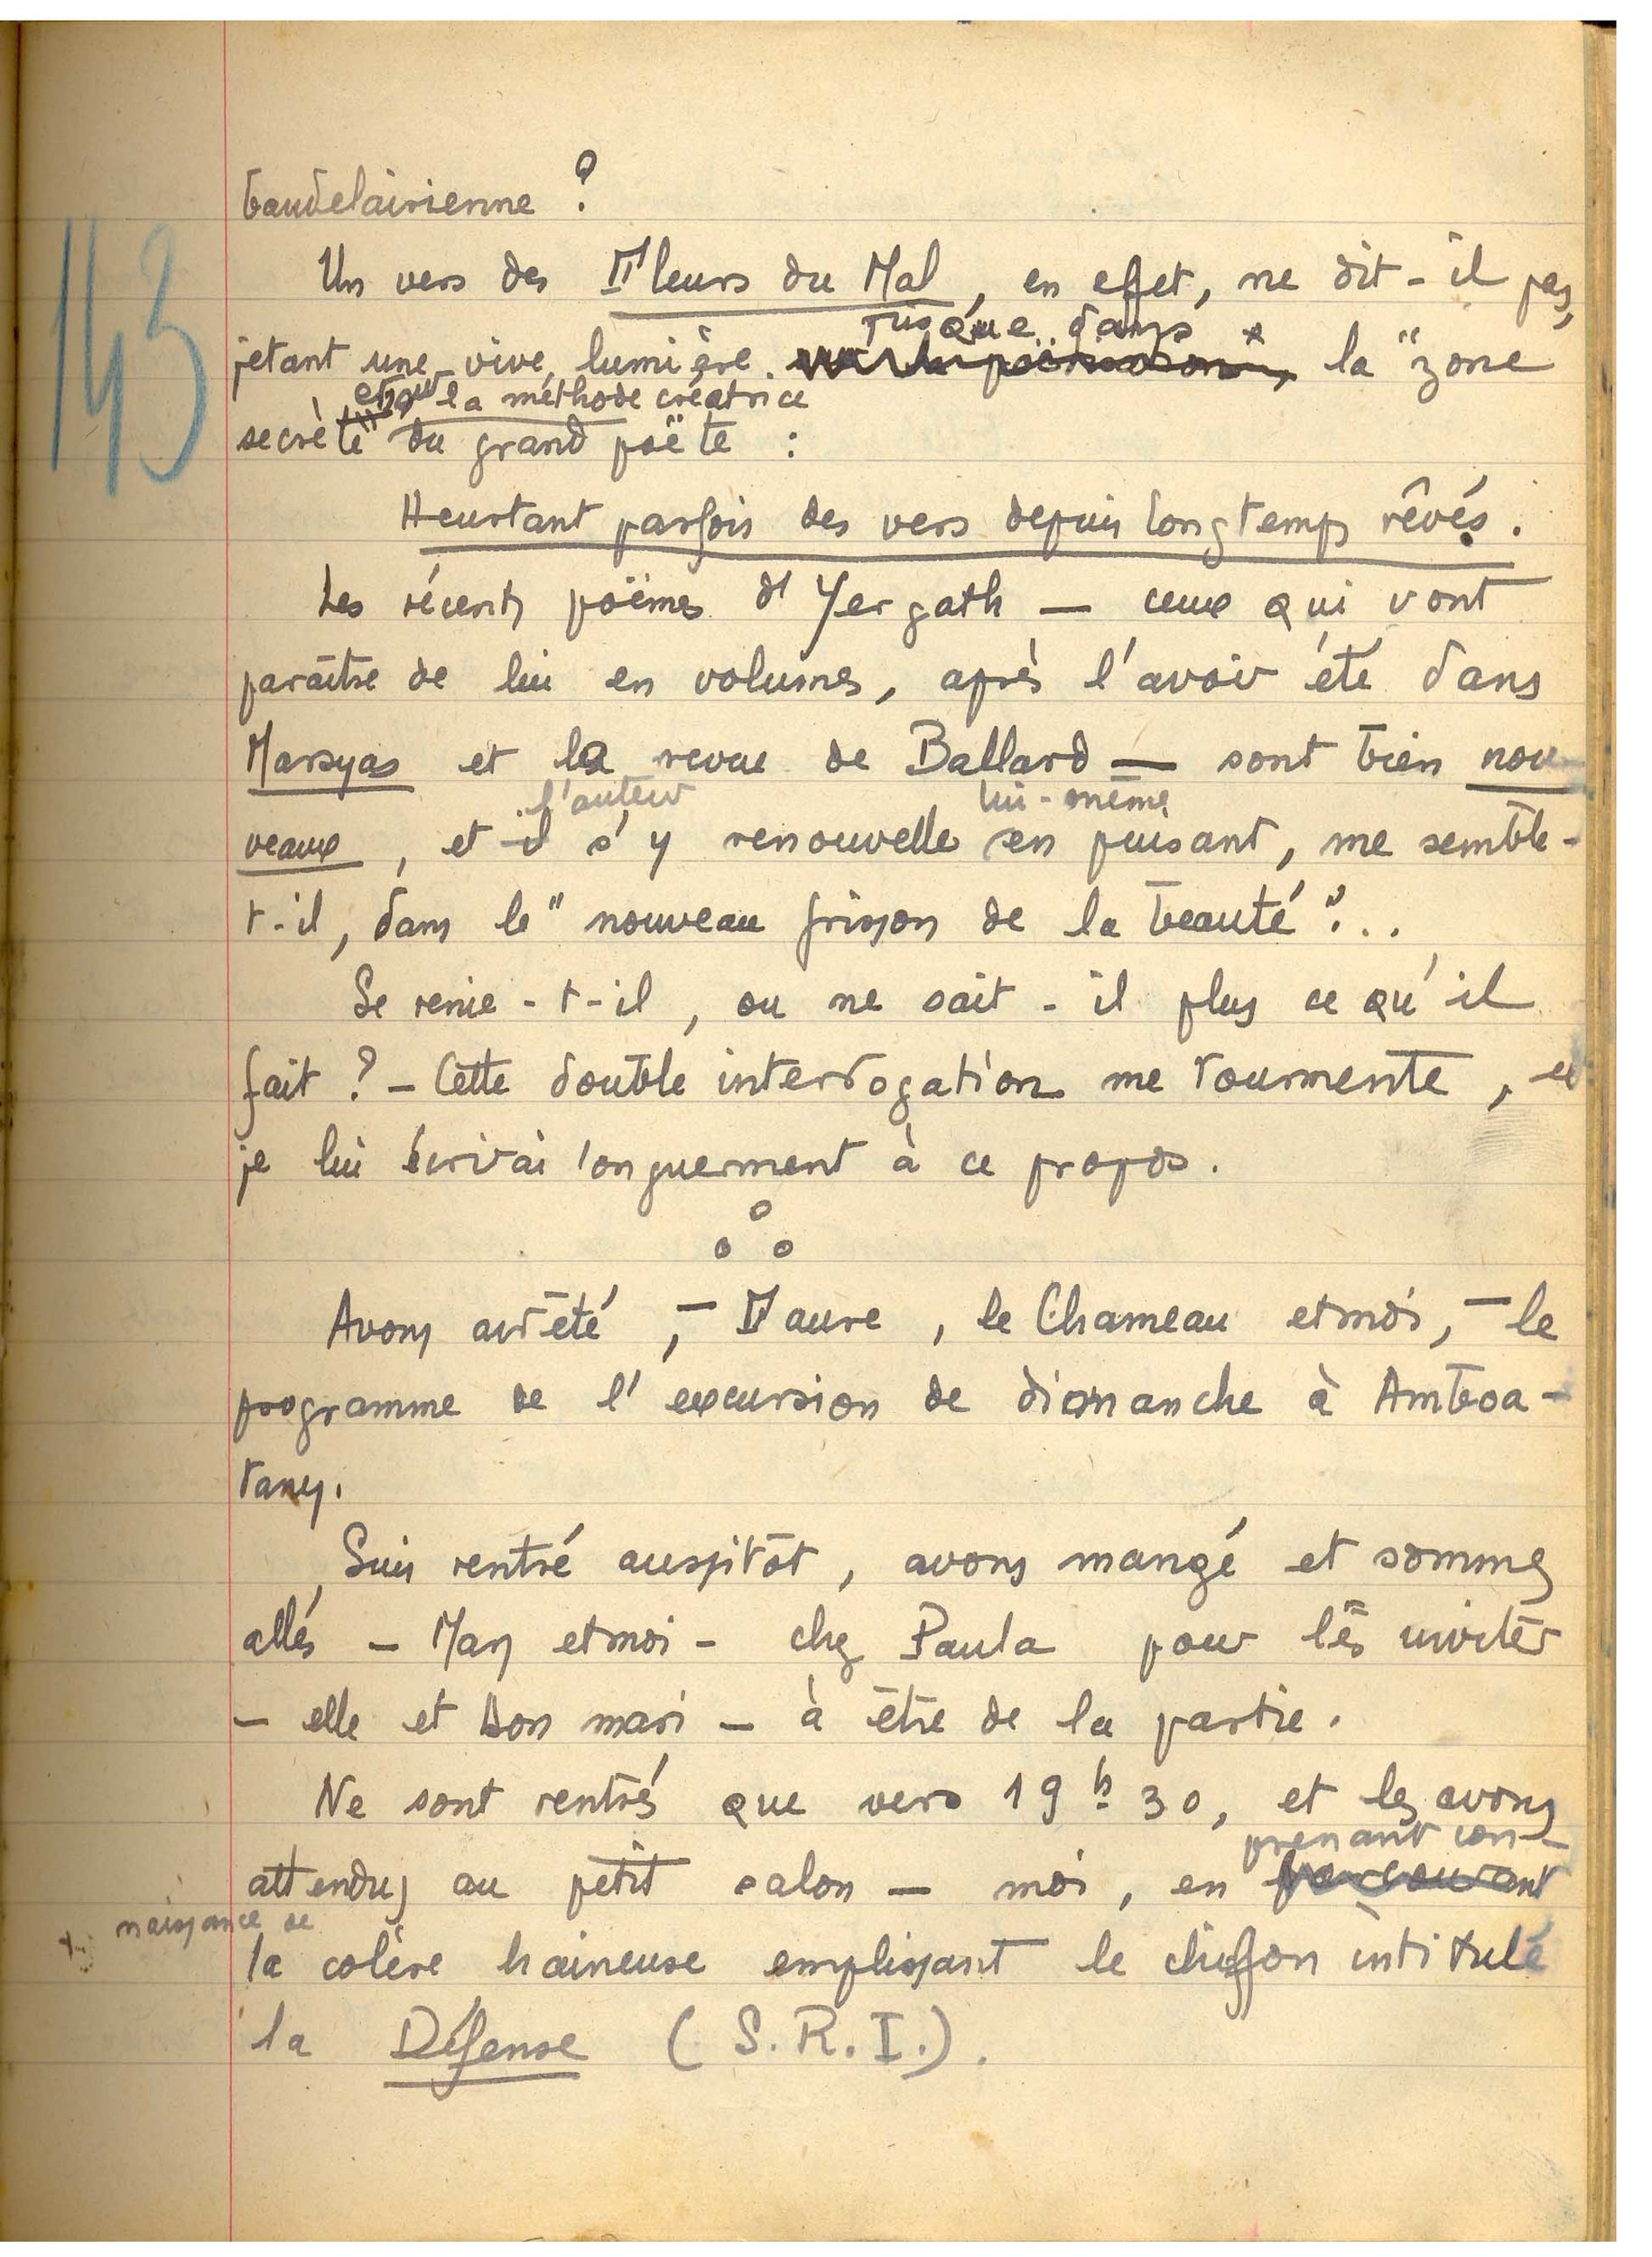 143
baudelairienne ?
Un vers des Fleurs du Mal, en effet, ne dit-il pas,
jusque dans
jetant une vive lumière la "zone
et sur la méthode créatrice
secrète" du grand poëte :
Heurtant parfois des vers depuis longtemps rêvés.
Les récents poëmes d'Yergath — ceux qui vont
paraître de lui en volumes, après l'avoir été dans
Marsyas et la revue de Ballard — sont bien nou-
l'auteur lui-même
veaux, et il s'y renouvelle en puisant, me semble-
t-il, dans le "nouveau frisson de la beauté"...
Se renie-t-il, ou ne sait-il plus ce qu'il
fait ? — Cette double interrogation me tourmente, et
je lui écrirai longuement à ce propos.
Avons arrêté, — Faure, le Chameau et moi, — le
programme de l'excursion de dimanche à Amboa-
tany.
Suis rentré aussitôt, avons mangé et sommes
allés — Mary et moi — chez Paula pour les inviter
— elle et son mari — à être de la partie.
Ne sont rentrés que vers 19h 30, et les avons
prenant con-
attendus au petit salon — moi, en parcourant
naissance de
la colère haineuse emplissant le chiffon intitulé
la Défense (S.R.I.).